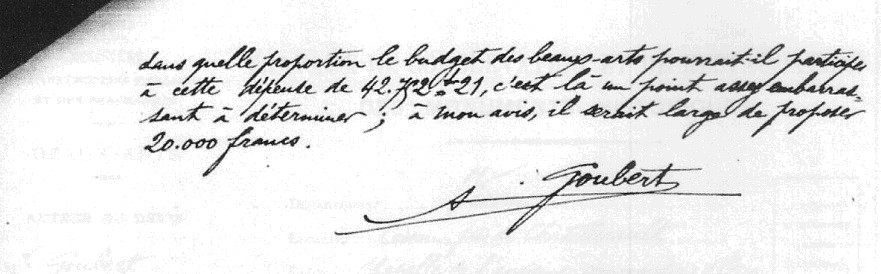 dans quelle proportion le budget des beaux-arts pourrait-il participer
à cette dépense de 42.792f21, c'est là un point assez embarras-
sant à déterminer ; à mon avis, il serait large de proposer
20.000 francs.
Goubert